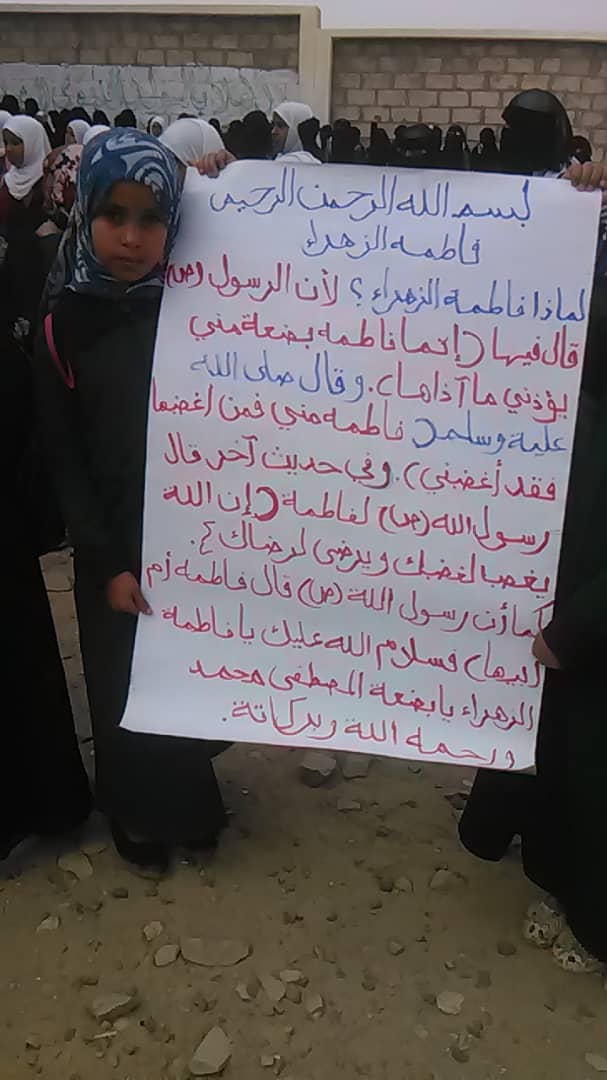 بسم الله الرحمن الرحيم
فاطمه الزهراء
لماذا فاطمة الزهراء ؟ لأن الرسول (ص)
قال فيها (إنما فاطمه بضعة مني
يؤذني ما آذاها). وقال صلى الله
علية وسلم( فاطمه مني فمن أغضبها
فقد أغضبني)). وفي حديث آخر قال
رسول الله (ص) لفاطمة (إن الله
يغصب لغضبك ويرضى لرضاك}.
كما أن رسول اللة (ص) قال فاطمه أم
أبيها) فسلام الله عليك يا فاطمة
الزهراء يا بضعة المصطفى محمد
ورحمه اللة وبركاتة.